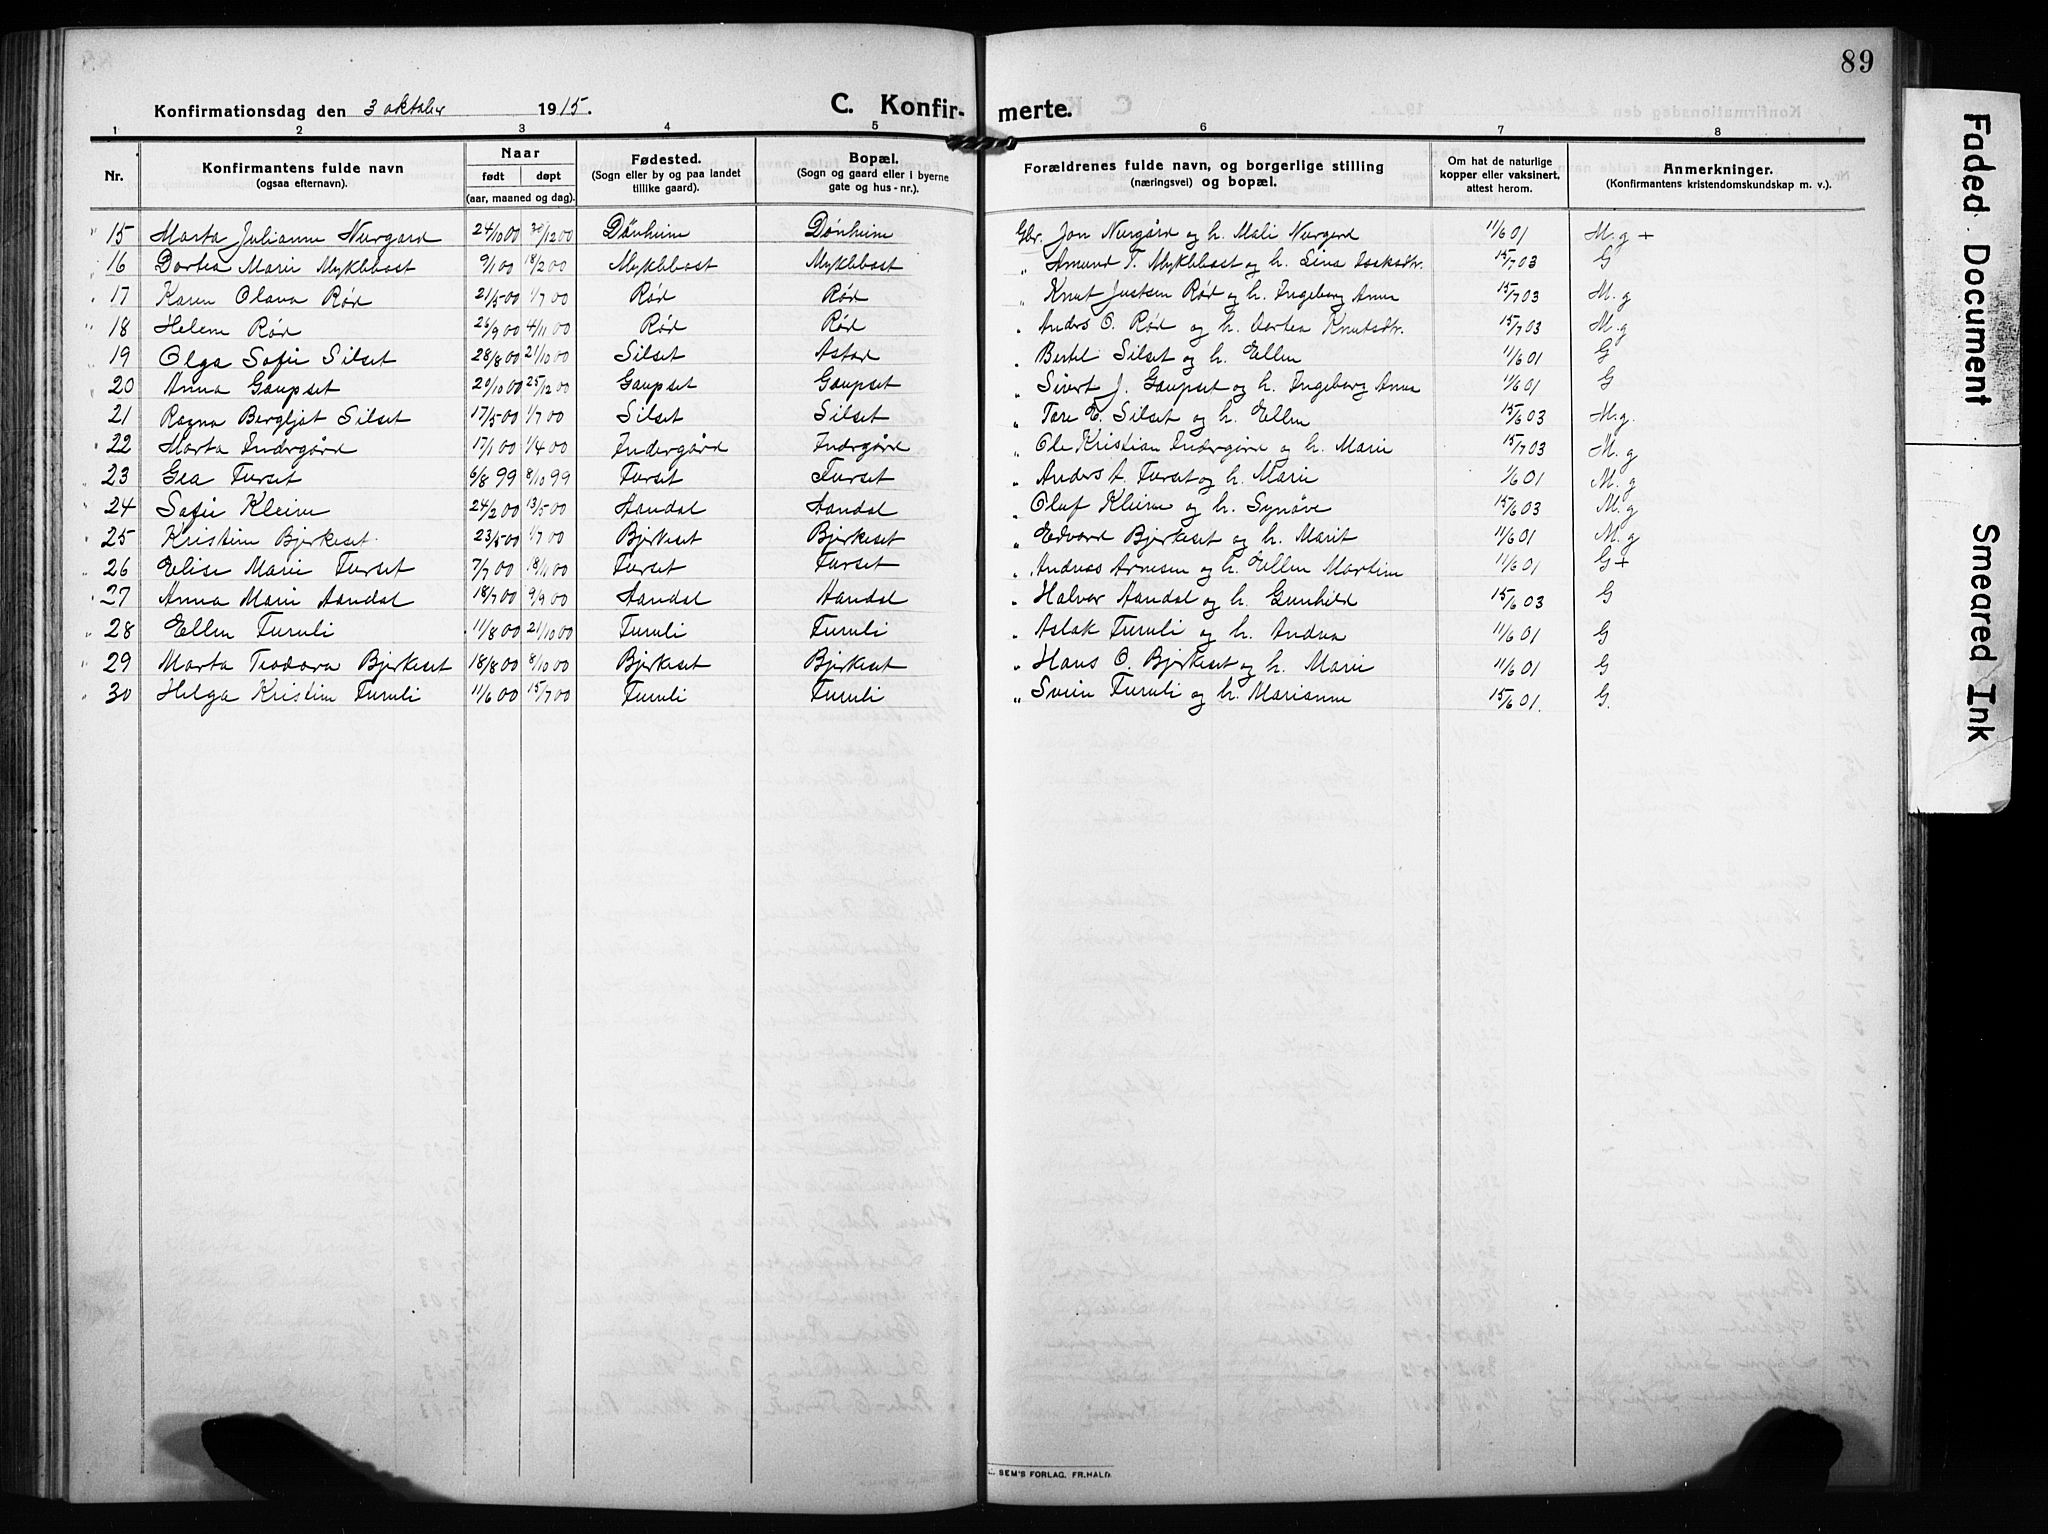 89
Konfirmationsdag den 3 oktober 1915. C. Konfir- merte.
1 2 3 4 5 6 7 8
Nr. Konfirmantens fulde navn (ogsaa efternavn). Naar født døpt (aar, maaned og dag). Fødested. (Sogn eller by og paa landet tillike gaard). Bopæl. (Sogn og gaard eller i byerne gate og hus-nr.). Forældrenes fulde navn, og borgerlige stilling (næringsvei) og bopæl. Om hat de naturlige kopper eller vaksinert, attest herom. Anmerkninger. (Konfirmantens kristendomskundskap m. v.).
" 15 Marta Julianne Nergard 24/10 00 30/12 00 Dønheim Dønheim Gbr. Jon Nergård og h. Mali Nergard 11/6 01 M.g +
" 16 Dortea Marie Myklebost 9/1 00 18/2 00 Myklebost Myklebost " Amund T. Myklebost og h. Lina Isaksdtr. 15/7 03 G
" 17 Karen Olava Rød 21/5 00 1/7 00 Rød Rød " Knut Justsen Rød og h. Ingeborg Anna 15/7 03 M.g
" 18 Helene Rød 26/9 00 4/11 00 Rød Rød " Anders O. Rød og h. Dortea Knutsdtr. 15/7 03 M.g
" 19 Olga Sofie Silset 28/8 00 21/10 00 Silset Astad " Bertel Silset og h. Ellen 11/6 01 G
" 20 Anna Gaupset 20/10 00 25/12 00 Gaupset Gaupset " Sivert J. Gaupset og h. Ingeborg Anna 11/6 01 G
21 Ragna Bergljot Silset 17/5 00 1/7 00 Silset Silset " Tore E. Silset og h. Ellen 15/6 03 M.g.
" 22 Marta Indergård 17/1 00 1/4 00 Indergård Indergård " Ole Kristian Indergård og h. Marie 15/7 03 M.g
" 23 Gea Furset 6/8 99 8/10 99 Furset Furset " Anders A. Furset og h. Marie 1/6 01 M.g
" 24 Sofie Kleive 24/2 00 13/5 00 Aandal Aandal " Oluf Kleive og h. Synøve 15/6 03 M.g
" 25 Kristine Bjerkeset 23/5 00 1/7 00 Bjerkeset Bjerkeset " Edvard Bjerkeset og h. Marit 11/6 01 M.g
" 26 Elise Marie Furset 7/7 00 18/11 00 Furset Furset " Andreas Arnesen og h. Ellen Martine 11/6 01 G+
" 27 Anna Marie Aandal 18/7 00 9/9 00 Aandal Aandal " Halvor Aandal og h. Gunhild 15/6 03 G
" 28 Ellen Furuli 11/8 00 21/10 00 Furuli Furuli " Aslak Furuli og h. Andrea 11/6 01 G
" 29 Marta Teodora Bjerkeset 18/8 00 8/10 00 Bjerkeset Bjerkeset " Hans O. Bjerkeset og h. Marie 11/6 01 G
" 30 Helga Kristine Furuli 11/6 00 15/7 00 Furuli Furuli " Svein Furuli og h. Marianne 15/6 01. G.
SEM'S FORLAG, FR.HALD
Faded Document
Smeared Ink